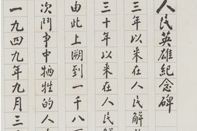 人民英雄紀念碑
三年以来在人民解
三十年以来在人民
由此上溯到一千八
次鬥争中犧牲的人
一九四九年九月三